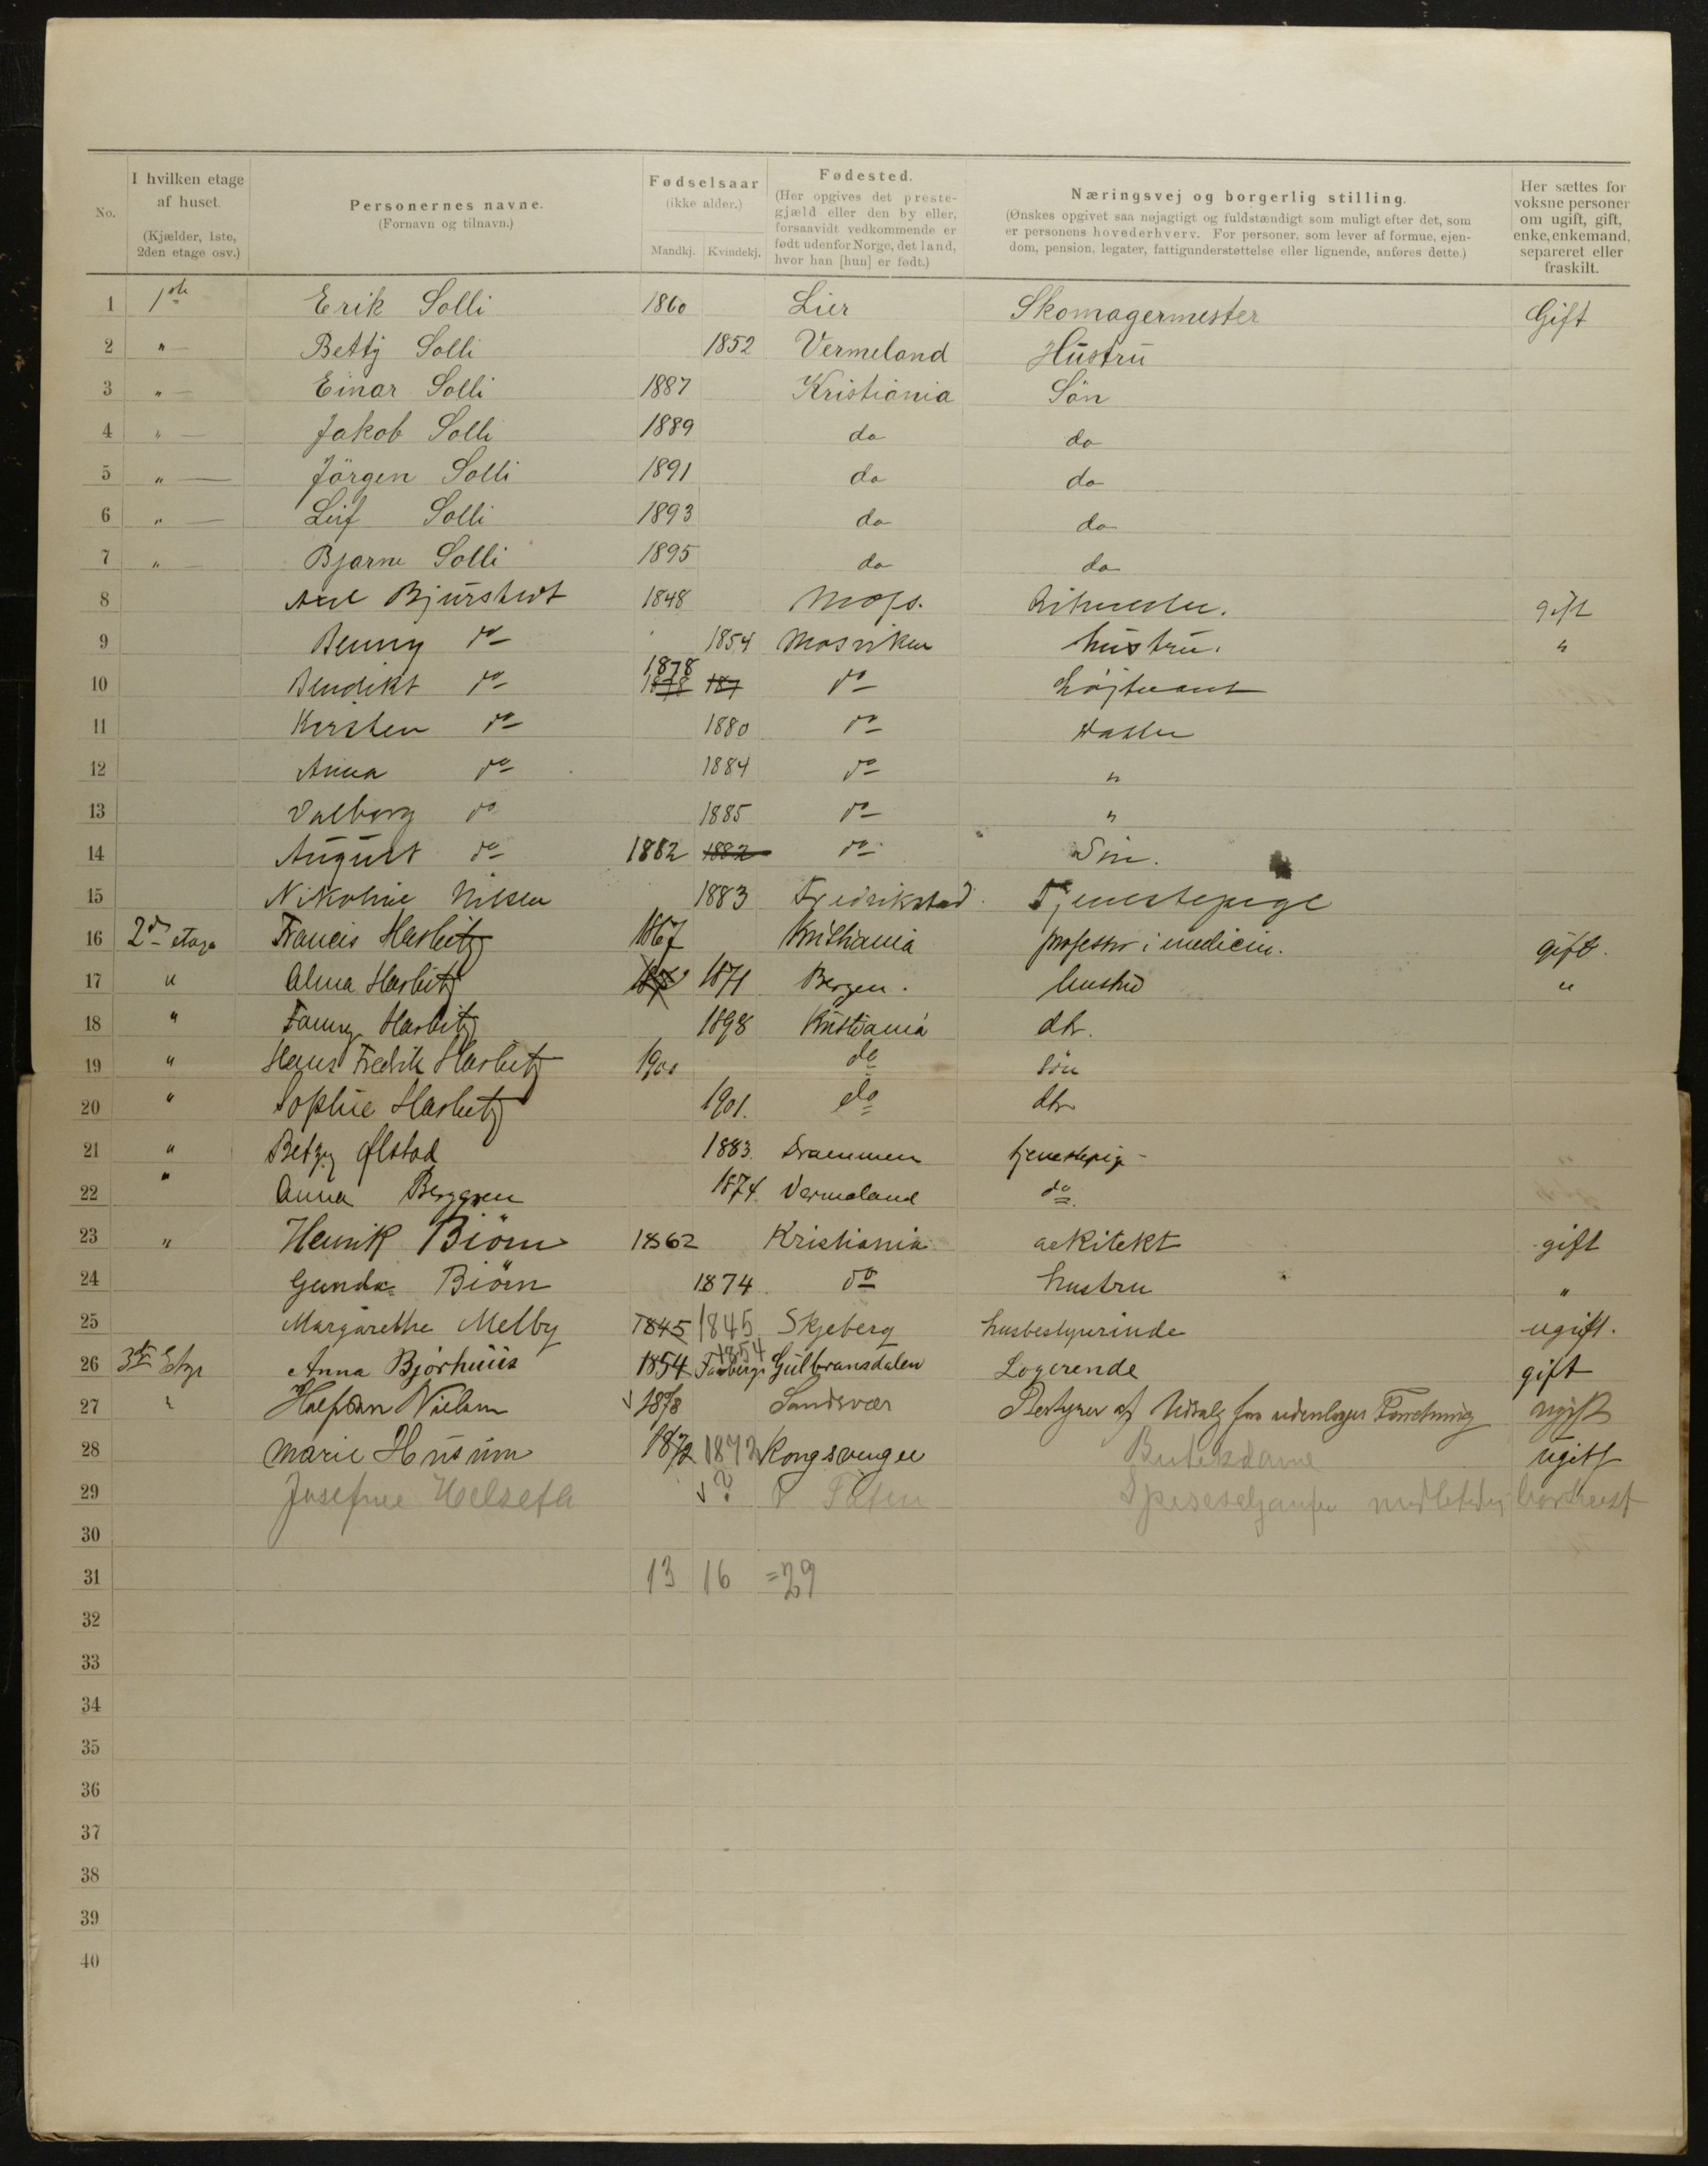 No.
I hvilken etage af huset. (Kjælder, 1ste, 2den etage osv.)
Personernes navne. (Fornavn og tilnavn.)
Fødselsaar (ikke alder.) Mandkj. Kvindekj.
Fødested. (Her opgives det prestegjæld eller den by eller, forsaavidt vedkommende er født udenfor Norge, det land, hvor han [hun] er født.)
Næringsvej og borgerlig stilling. (Ønskes opgivet saa nøjagtigt og fuldstændigt som muligt efter det, som er personens hovederhverv. For personer, som lever af formue, ejendom, pension, legater, fattigunderstøttelse eller lignende, anføres dette.)
Her sættes for voksne personer om ugift, gift, enke, enkemand, separeret eller fraskilt.
1 1ste Erik Solli 1860 Lier Skomagermester Gift
2 " Betty Solli 1852 Vermeland Hustru
3 " Einar Solli 1887 Kristiania Sön
4 " Jakob Solli 1889 do do
5 " Jörgen Solli 1891 do do
6 " Leif Solli 1893 do do
7 " Bjarne Solli 1895 do do
8 Axel Bjurstedt 1848 Moss. gift
9 Benny do 1854 Mosviken hustru. "
10 Bendikt do 1878 1878 187 do Løjtnant
11 Kirsten do 1880 do Datter
12 Anna do 1884 do "
13 Valborg do 1885 do "
14 August do 1882 1882 do Sön.
15 Nikoline Nilsen 1883 Fredrikstad Tjenestepige
16 2den etage Francis Harbitz 1867 Kristiania professor i medicin. gift.
17 " Alma Harbitz 1871 Bergen. hustru "
18 " Fanny Harbitz 1898 Kristiania dtr.
19 " Hans Fredrik Harbitz 1900 do sön
20 " Sophie Harbitz 1901. do dtr
21 " Betzy Ølstad 1883. Drammen tjenestepige
22 " Anna Berggren 1874. Vermeland do
23 " Henrik Biörn 1862 Kristiania arkitekt gift
24 Gunda Biörn 1874 do hustru "
25 Margarethe Melby 1845 1845 Skjeberg husbestyrerinde ugift.
26 3die Etage Anna Bjørhuus 1854 1854 Faaberg Gulbransdalen Logerende gift
27 " Halfdan Nielsen 1878 Sandsvær Bestyrer af Udsalg for udenlandsk Forretning ugift
28 Marie Husum 1872 1872 Kongsvinger Butikdame ugift
29 Josefine Helseth ? V Toten bortreist
30
31 13 16 =29
32
33
34
35
36
37
38
39
40